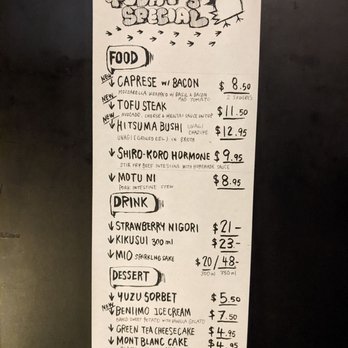 TODAY'S
SPECIAL
FOOD
NEW
CAPRESE w/ BACON $ 8.50
MOZZARELLA WRAPPED w/ BASIL & BACON 2 SKEWERS
AND TOMATO
NEW
TOFU STEAK $ 11.50
AVOCADO, CHEESE & MENTAI SAUCE ON TOP
NEW
HITSUMABUSHI UNAGI CHAZUKE $ 12.95
UNAGI (GRILLED EEL) IN
SHIRO-KORO HORMONE $ 9.95
STIR FRY BEEF INTESTINE WITH HOMEMADE SAUCE
MOTU NI $ 8.95
PORK INTESTINE STEW
DRINK
STRAWBERRY NIGORI $ 21-
KIKUSUI 300 ml $ 23-
MIO SPARKLING SAKE $ 20 / 48-
300ml 750ml
DESSERT
YUZU SORBET $ 5.50
NEW
BENIIMO ICE CREAM $ 7.50
SWEET POTATO WITH VANILLA GELATO
GREEN TEA CHEESECAKE $ 4.95
MONT BLANC CAKE $ 4.95